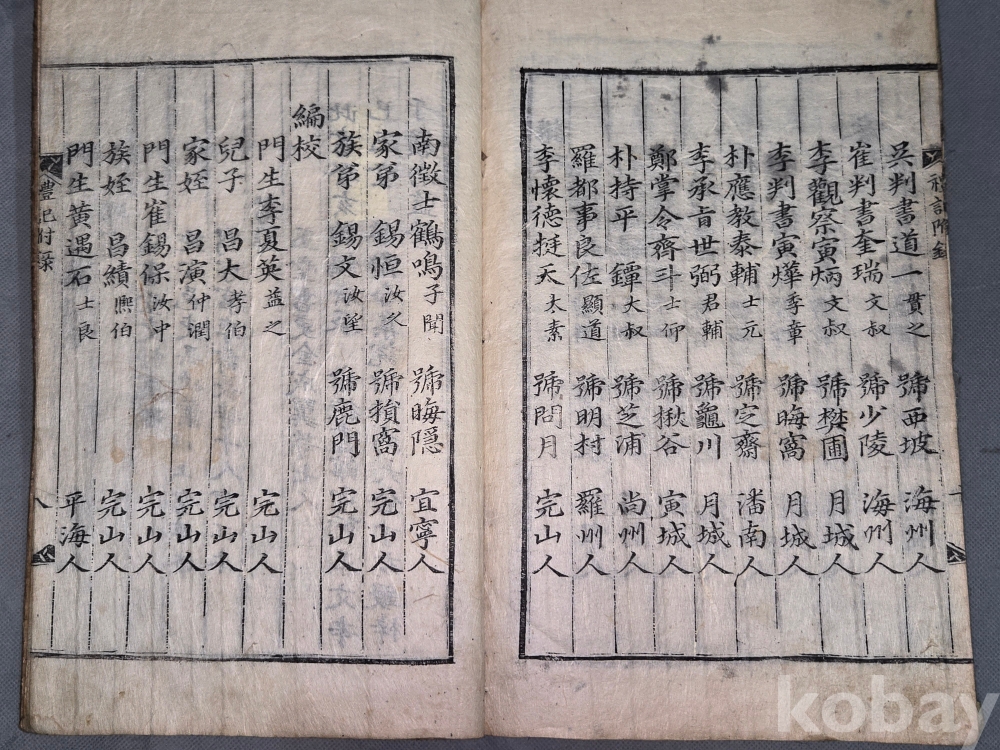 吳判書道一 貫之 號西坡 海州人
崔判書奎瑞 文叔 號少陵 海州人
李觀察寅炳 文叔 號樊圃 月城人
李判書寅燁 季章 號晦窩 月城人
朴應教泰輔 士元 號定齋 潘南人
李承旨世弼 君輔 號龜川 月城人
鄭掌令齊斗 士仰 號楸谷 寅城人
朴持平 鐔 大叔 號芝浦 尚州人
羅都事良佐 顯道 號明村 羅州人
李懷德挺天 太素 號問月 完山人
禮記附錄
一
南徵士鶴鳴 子聞 號晦隱 宜寧人
家弟 錫恒 汝久 號損窩 完山人
族弟 錫文 汝望 號鹿門 完山人
編校
門生李夏英 益之 完山人
兒子 昌大 孝伯 完山人
家姪 昌演 仲潤 完山人
門生崔錫保 汝中 完山人
族姪 昌績 熙伯 完山人
門生黃遇石 士良 平海人
豊巳付彔
八
kobay